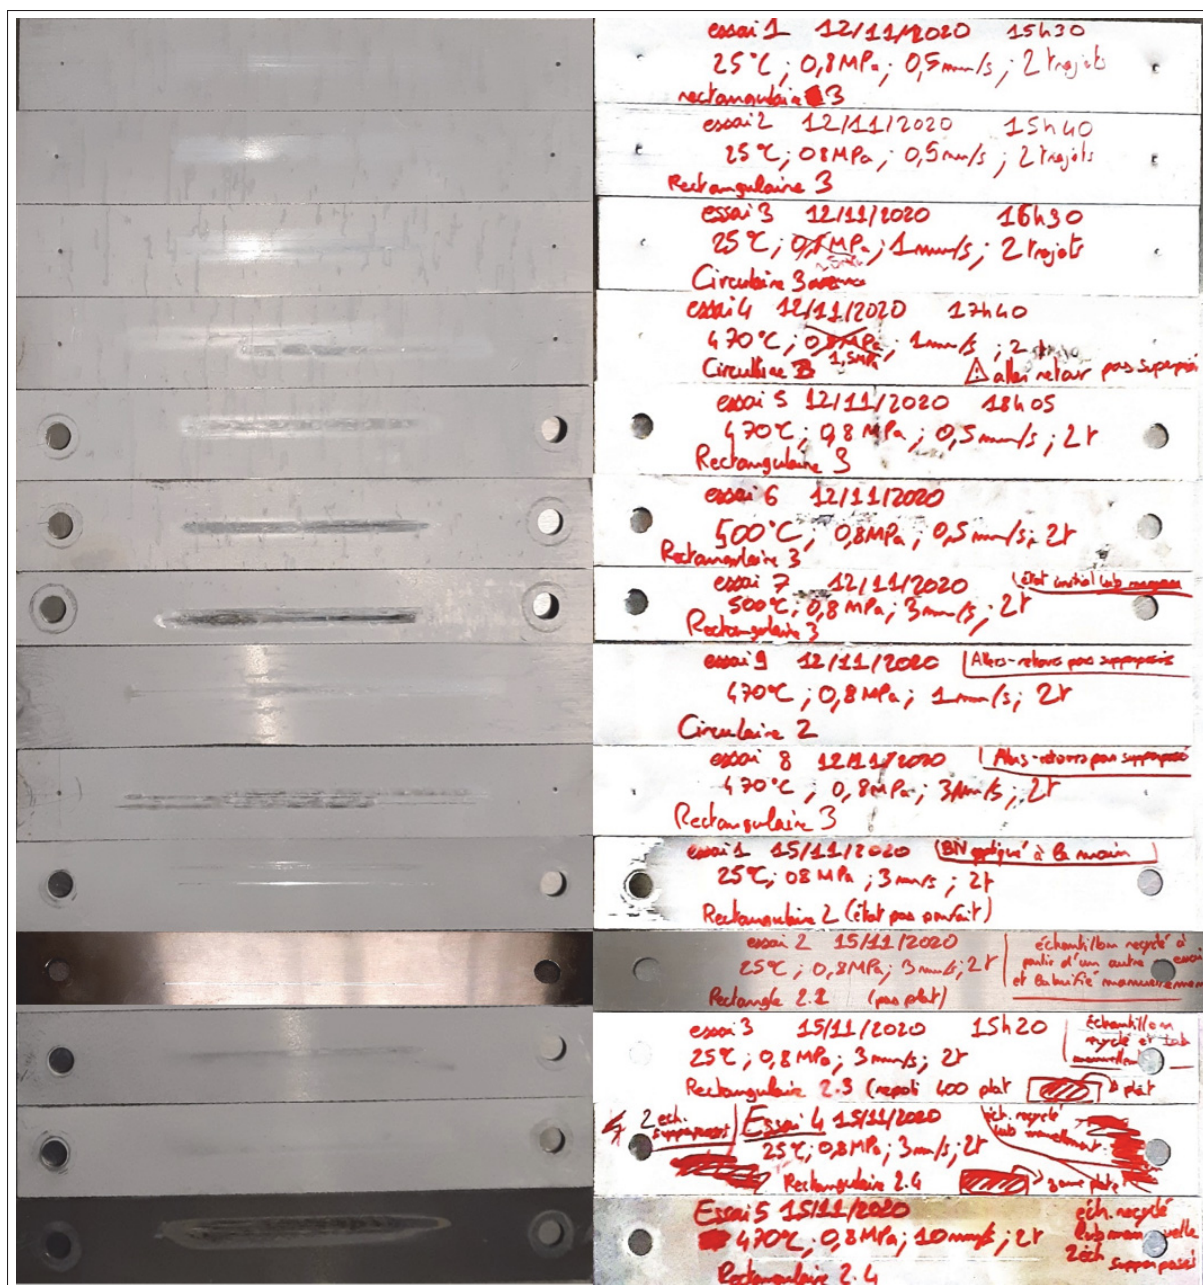 essai 1 12/11/2020 15h30
25°C ; 0,8MPa ; 0,5mm/s ; 2 trajets
rectangulaire 3
essai 2 12/11/2020 15h40
25°C ; 08MPa ; 0,5mm/s ; 2 trajets
Rectangulaire 3
essai 3 12/11/2020 16h30
25°C ; 0,8MPa ; 1mm/s ; 2 trajets
Circulaire 3
essai 4 12/11/2020 17h40
470°C ; 0,8MPa ; 1mm/s ; 2 t
1,5MPa
Circulaire 3 ⚠ aller retour pas superposé
essai 5 12/11/2020 18h05
470°C ; 0,8MPa ; 0,5mm/s ; 2t
Rectangulaire 3
essai 6 12/11/2020
500°C ; 0,8MPa ; 0,5mm/s ; 2t
Rectangulaire 3
essai 7 12/11/2020 état initial lub
500°C ; 0,8MPa ; 3mm/s ; 2t
Rectangulaire 3
essai 9 12/11/2020 Allers-retours pas superposés
470°C ; 0,8MPa ; 1mm/s ; 2t
Circulaire 2
essai 8 12/11/2020 Allers-retours pas superposé
470°C ; 0,8MPa ; 3mm/s ; 2t
Rectangulaire 3
essai 1 15/11/2020 BN appliqué à la main
25°C ; 08MPa ; 3mm/s ; 2t
Rectangulaire 2 (état pas parfait)
essai 2 15/11/2020 échantillon recyclé à
25°C ; 0,8MPa ; 3mm/s ; 2t partir d'un autre essai
et lubrifié manuellement
Rectangle 2.2 (pas plat)
essai 3 15/11/2020 15h20 échantillon
25°C ; 0,8MPa ; 3mm/s ; 2t recyclé et lub
manuellement
Rectangulaire 2.3 (repoli 400 plat plat
2 éch. superposés Essai 4 15/11/2020 éch. recyclé
25°C ; 0,8MPa ; 3mm/s ; 2t lub manuellement
Rectangulaire 2.4 zone plate
Essai 5 15/11/2020 éch. recyclé
470°C ; 0,8MPa ; 10mm/s ; 2t lub manuelle
2éch superposés
Rectangulaire 2.4